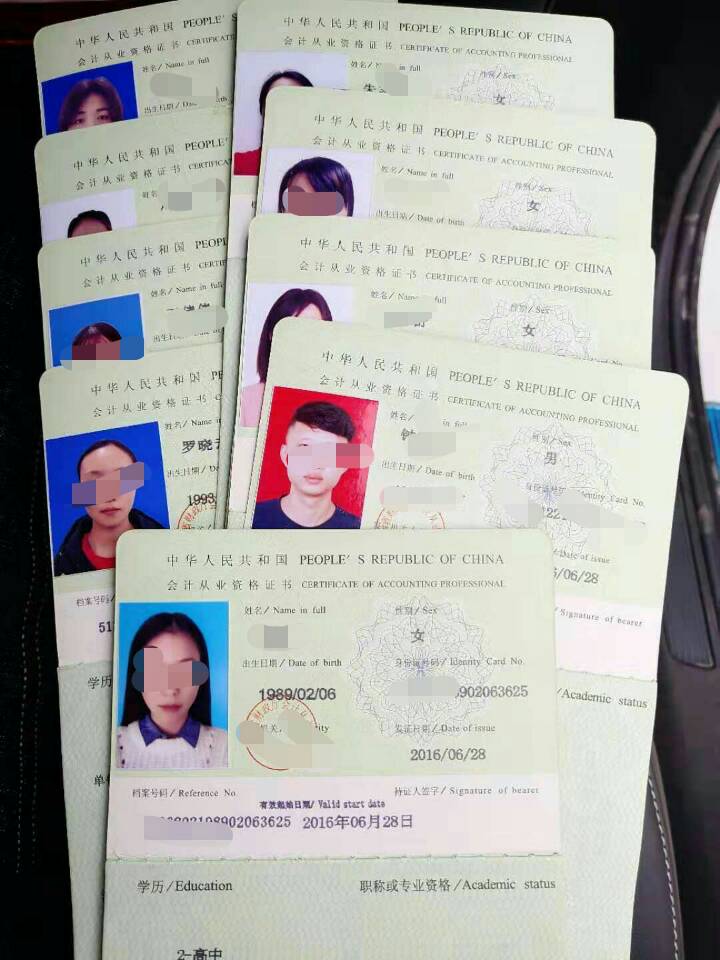 中华人民共和国 PEOPLE' S
会计从业资格证书 CERTIFICATE
姓名/ Name in full
出生日期/ Da
中华人民共和国 PEOPLE' S REPUBLIC OF CHINA
会计从业资格证书 CERTIFICATE OF ACCOUNTING PROFESSIONAL
性别/ Sex
女
中华人民共和国 PEOPLE'
会计从业资格证书 CERTIFICA
姓名
中华人民共和国 PEOPLE' S REPUBLIC OF CHINA
会计从业资格证书 CERTIFICATE OF ACCOUNTING PROFESSIONAL
姓名/ Name in full
性别/ Sex
女
出生日期/ Date of birth
中华人民共和国 PEOPL
会计从业资格证书 CERTIF
姓名/ Name in full
出生日期/
中华人民共和国 PEOPLE' S REPUBLIC OF CHINA
会计从业资格证书 CERTIFICATE OF ACCOUNTING PROFESSIONAL
姓名/ Name in full
性别/ Sex
女
中华人民共和国
会计从业资格证书 CER
姓名/ Name in
罗晓
出生日期/ Da
1993
档案号码/
51
学历/
中华人民共和国 PEOPLE' S REPUBLIC OF CHINA
会计从业资格证书 CERTIFICATE OF ACCOUNTING PROFESSIONAL
姓名/ in full
性别/ Sex
男
出生日期/ Date of birth
身份证号码/ Identity Card No.
Date of issue
/06/28
Signature of bearer
/Academic status
中华人民共和国 PEOPLE' S REPUBLIC OF CHINA
会计从业资格证书 CERTIFICATE OF ACCOUNTING PROFESSIONAL
姓名/ Name in full
性别/ Sex
女
出生日期/ Date of birth
身份证号码/ Identity Card No.
1989/02/06
902063625
发证日期/ Date of issue
2016/06/28
档案号码/ Reference No.
持证人签字/ Signature of bearer
有效起始日期/ Valid start date
198902063625 2016年06月28日
学历/Education
职称或专业资格/Academic status
2-高中